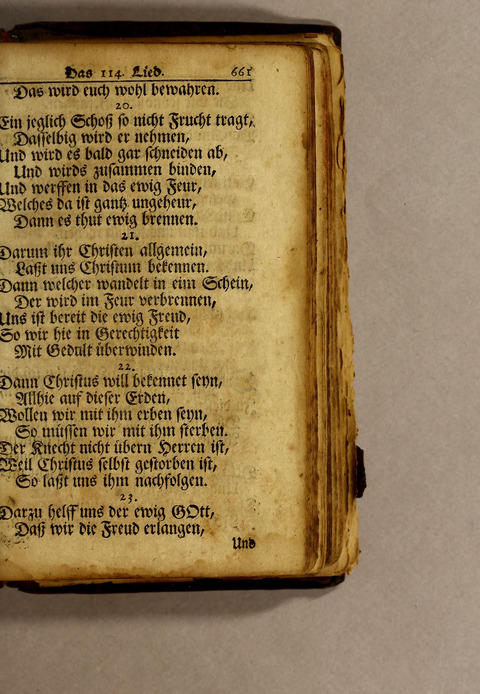 Das 114. Lied. 661
Das wird euch wohl bewahren.
20.
Ein jeglich Schoß so nicht Frucht tragt,
Dasselbig wird er nehmen,
Und wird es bald gar schneiden ab,
Und wirds zusammen binden,
Und werffen in das ewig Feur,
Welches da ist gantz ungeheur,
Dann es thut ewig brennen.
21.
Darum ihr Christen allgemein,
Laßt uns Christum bekennen.
Dann welcher wandelt in eim Schein,
Der wird im Feur verbrennen,
Uns ist bereit die ewig Freud,
So wir hie in Gerechtigkeit
Mit Gedult überwinden.
22.
Dann Christus will bekennet seyn,
Allhie auf dieser Erden,
Wollen wir mit ihm erben seyn,
So müssen wir mit ihm sterben.
Der Knecht nicht übern Herren ist,
Weil Christus selbst gestorben ist,
So laßt uns ihm nachfolgen.
23.
Darzu helff uns der ewig GOtt,
Daß wir die Freud erlangen,
Und